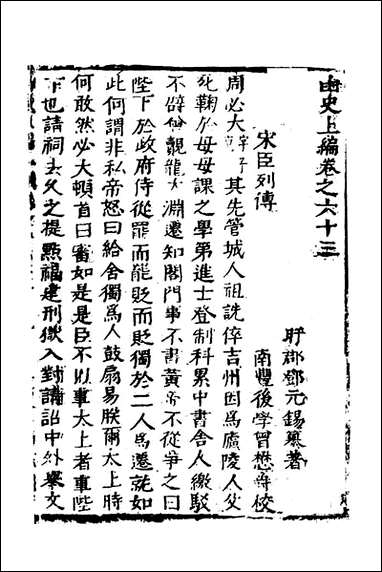 函史上編卷之六十三
盱郡鄧元錫纂著
宋臣列傳
南豐後學曾懋爵校
周必大字子其先管城人祖詵倅吉州因爲廬陵人父
死鞠於母母課之學第進士登制科累中書舍人繳駁
不辟會覿龍大淵遷知閤門事不書黃帝不從爭之曰
陛下於政府侍從罷而罷貶而貶獨於二人爲遷就如
此何謂非私帝怒曰給舍獨爲人鼓扇易朕爾太上時
何敢然必大頓首曰審如是是臣不以事太上者事陛
下也請祠去久之提點福建刑獄入對請詔中外舉文